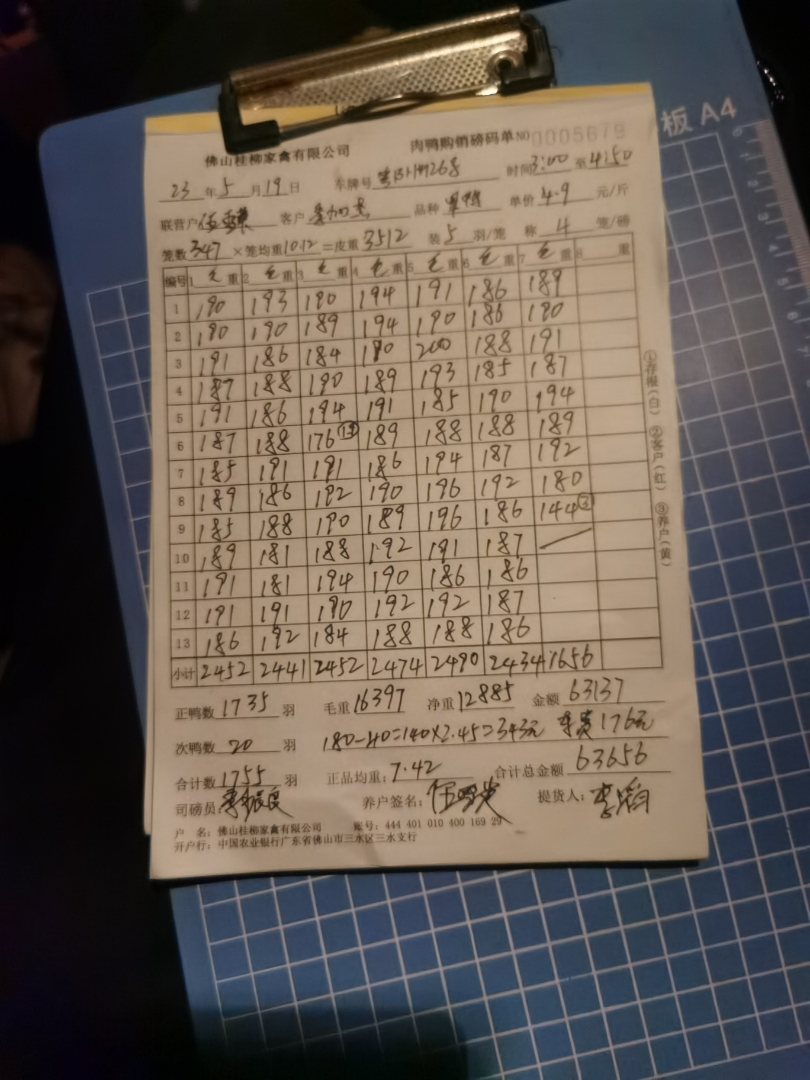 佛山桂柳家禽有限公司 肉鸭购销磅码单 NO 0005679
23 年 5 月 19 日 车牌号 时间 3:00 至 4:50
联营户 客户 品种 单价 4.9 元/斤
笼数 347 ×笼均重 10.12 =皮重 3512 装 5 羽/笼 称 4 笼/磅
编号 1 毛 重 2 毛 重 3 毛 重 4 毛 重 5 毛 重 6 毛 重 7 毛 重 8 重
1 190 193 190 194 191 186 189
2 190 190 189 194 190 186 190
3 191 186 184 190 200 188 191
4 187 188 190 189 193 185 187
5 191 186 194 191 185 190 194
6 187 188 176 189 188 188 189
7 185 191 191 186 194 187 192
8 189 186 192 190 196 192 180
9 185 188 190 189 196 186 144 ②
10 189 181 188 192 191 187
11 191 181 194 190 186 186
12 191 191 190 192 192 187
13 186 192 184 188 188 186
小计 2452 2441 2452 2474 2490 2434 1656
正鸭数 1735 羽 毛重 16397 净重 12885 金额 63137
次鸭数 20 羽 180-40=140×2.45=343元 车费176元
合计数 1755 羽 正品均重: 7.42 合计总金额 63656
司磅员: 养户签名: 提货人:
户 名: 佛山桂柳家禽有限公司 账号: 444 401 010 400 169 29
开户行: 中国农业银行广东省佛山市三水区三水支行
①存根(白) ②客户(红) ③养户(黄)
板 A4